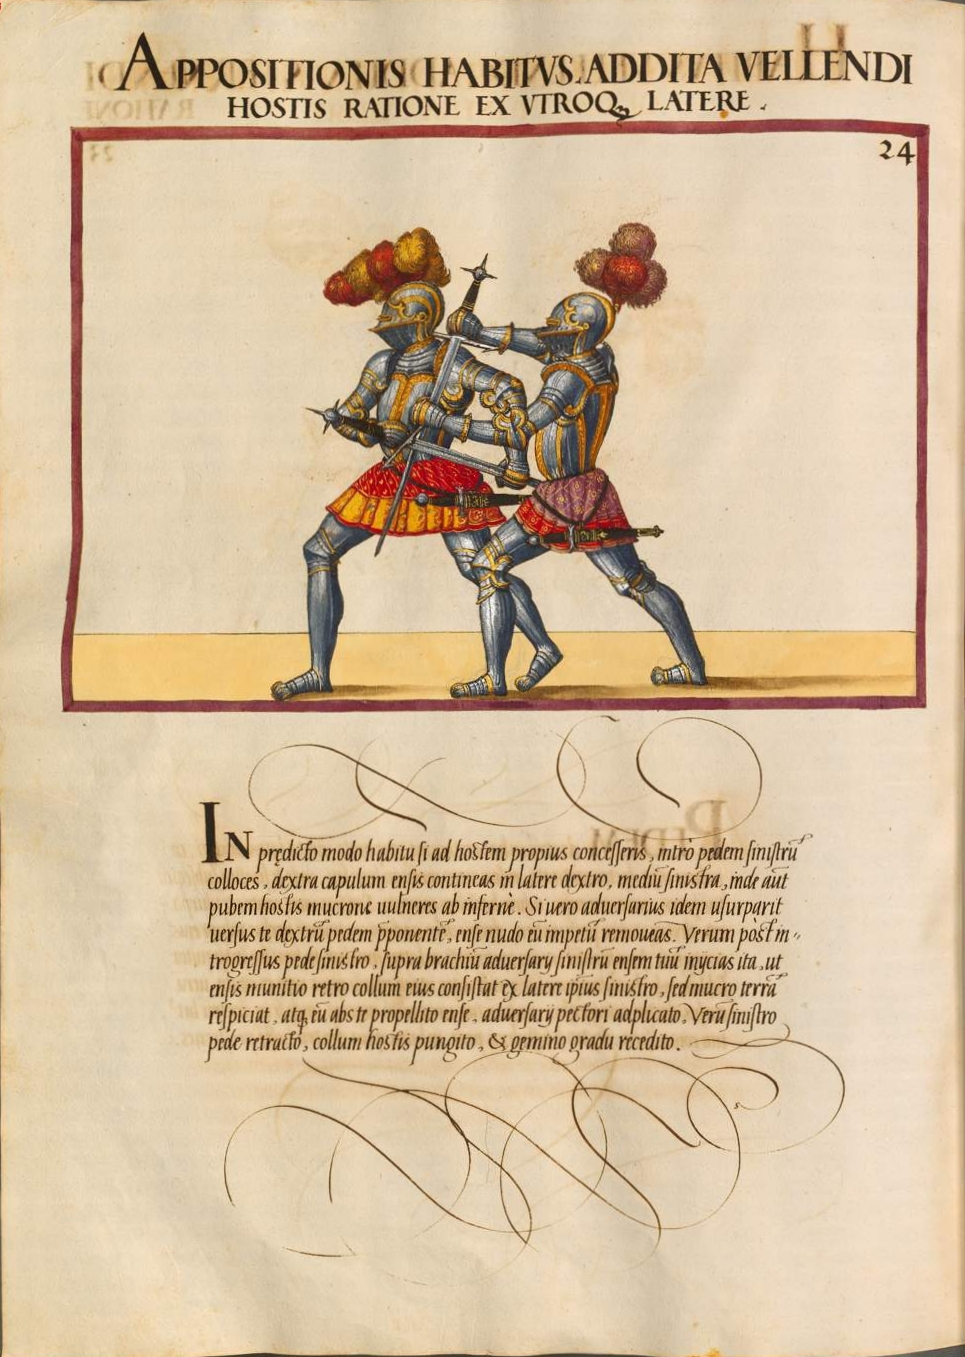 APPOSITIONIS HABITVS. ADDITA VELLENDI
HOSTIS RATIONE EX VTROQ; LATERE.
24
IN prędicto modo habitu si ad hostem propius concesseris, intrò pedem sinistrū
colloces, dextra capulum ensis contineas in latere dextro, mediū sinistra, inde aut
pubem hostis mucrone uulneres ab infernè. Si uero aduersarius idem usurparit
uersus te dextrū pedem p̄ponente, ense nudo eū impetū remoueas. Verum pòst in=
trogressus pede sinistro, supra brachiū aduersarij sinistrū ensem tuū inijcias ita, ut
ensis munitio retro collum eius consistat ex latere ipius sinistro, sed mucro terrā
respiciat, atq; eū abs te propellito ense, aduersarij pectori adplicato. Verū sinistro
pede retracto, collum hostis pungito, & gemino gradu recedito.